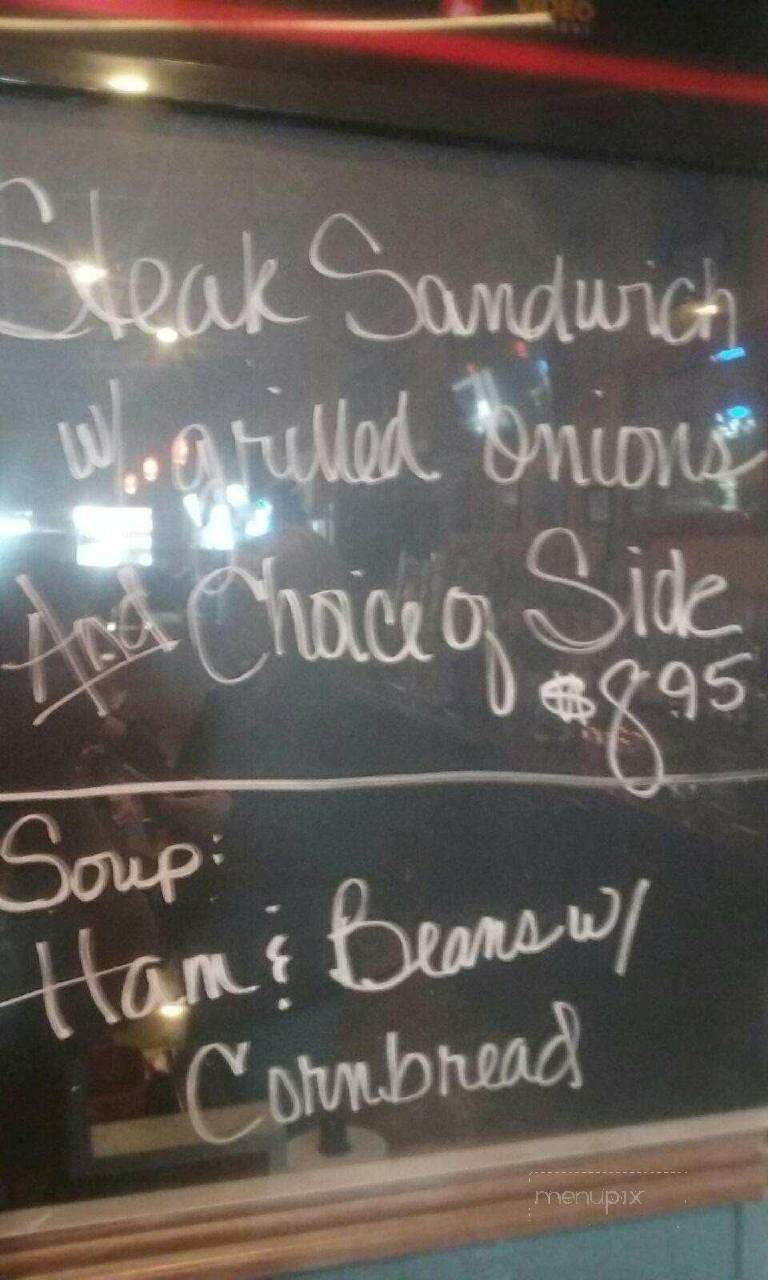 VIDEO
Steak Sandwich
w/ grilled onions
And Choice of Side
$8.95
Soup:
Ham & Beans w/
Cornbread
menupix